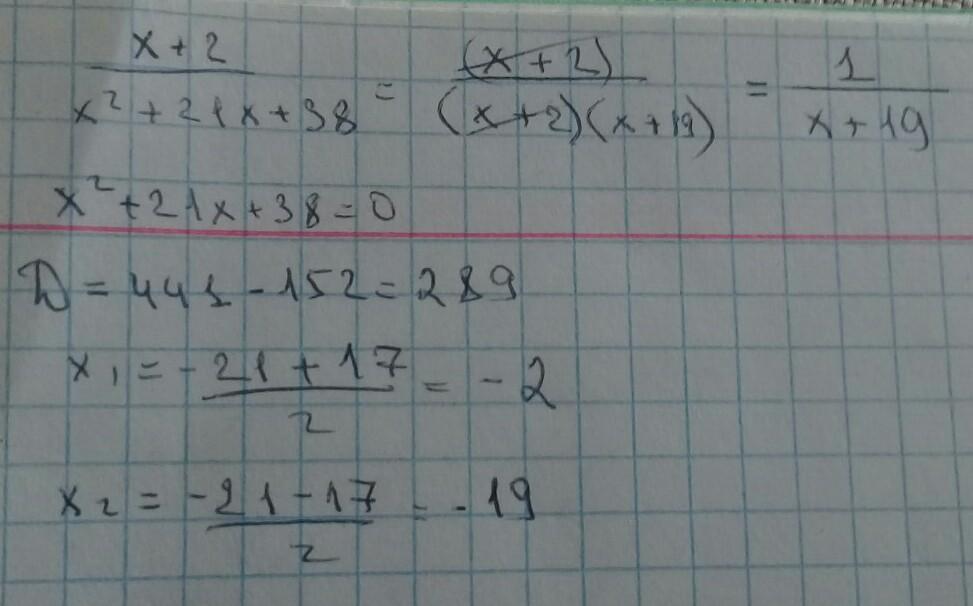 x + 2 / x² + 21x + 38 = (x + 2) / (x + 2)(x + 19) = 1 / x + 19
x² + 21x + 38 = 0
D = 441 - 152 = 289
x₁ = -21 + 17 / 2 = -2
x₂ = -21 - 17 / 2 = -19